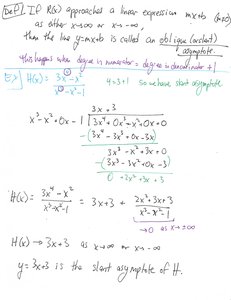 [Def] If R(x) approaches a linear expression mx+b (m≠0)
as either x→∞ or x→-∞,
then the line y=mx+b is called an oblique (or slant)
asymptote.
this happens when degree in numerator = degree in denominator +1
Ex H(x) = (3x⁴-x²)/(x³-x²-1) 4=3+1 so we have slant asymptote
3x+3
x³-x²+0x-1 ) 3x⁴+0x³-x²+0x+0
-(3x⁴-3x³+0x-3x)
3x³-x²+3x+0
-(3x³-3x²+0x-3)
0+2x²+3x+3
H(x) = (3x⁴-x²)/(x³-x²-1) = 3x+3 + (2x²+3x+3)/(x³-x²-1)
→0 as x→±∞
H(x) → 3x+3 as x→∞ or x→-∞
y=3x+3 is the slant asymptote of H.